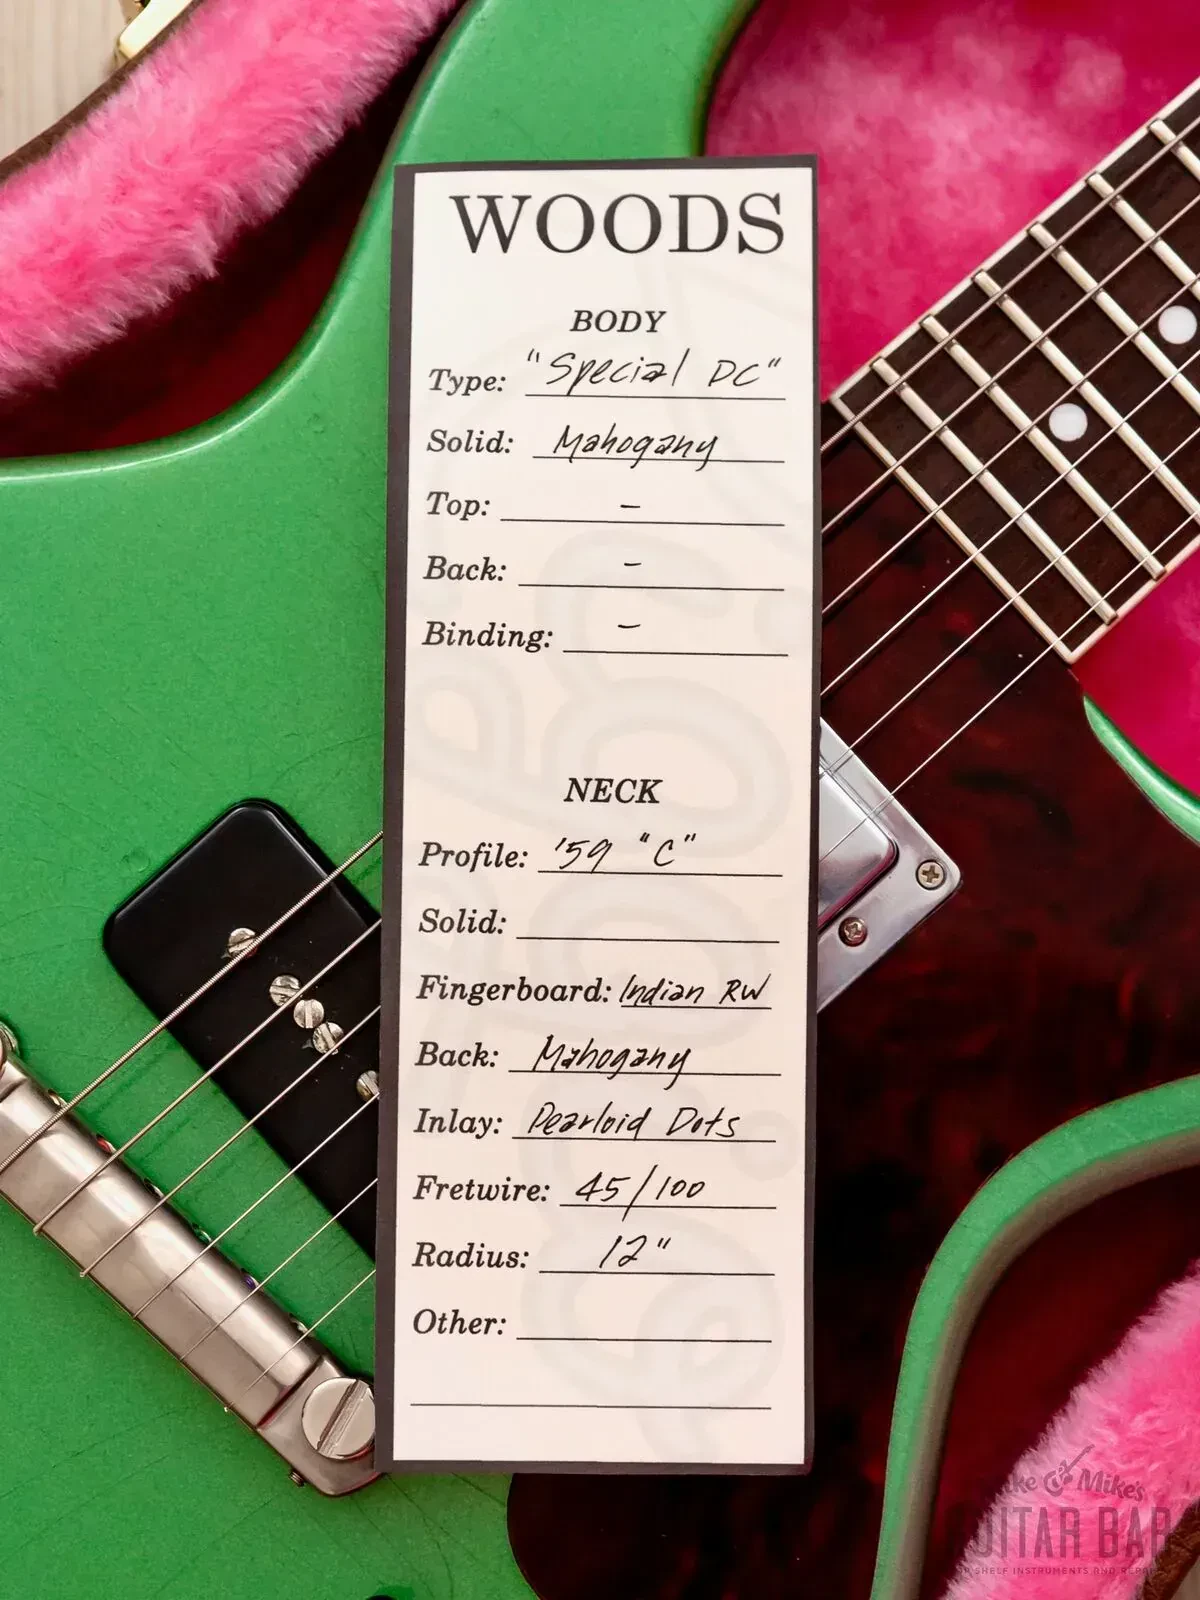 WOODS
BODY
Type: "Special DC"
Solid: Mahogany
Top: –
Back: –
Binding: –
NECK
Profile: '59 "C"
Solid:
Fingerboard: Indian RW
Back: Mahogany
Inlay: Pearloid Dots
Fretwire: 45/100
Radius: 12"
Other:
Mike's
GUITAR BAR
SHELF INSTRUMENTS AND REPAIR